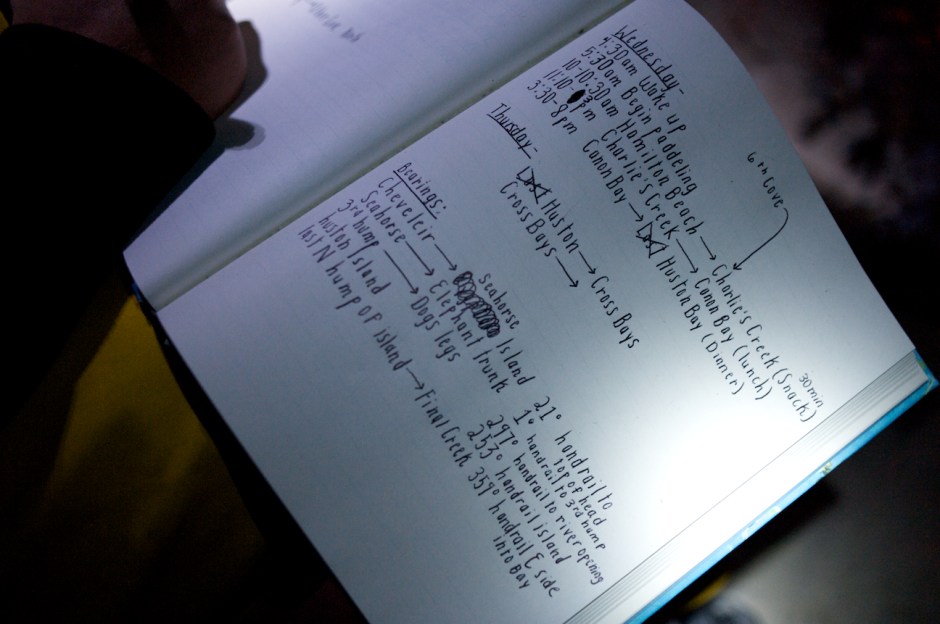 Wednesday-
4:30am Wake up
5:30am Begin paddeling
10-10:30am Hamilton Beach → Charlie's Creek (Snack) 30min
11:10-3pm Charlie's Creek → Canon Bay (lunch)
3:30-8pm Canon Bay → Huston Bay (Dinner)
6th Cove
Thursday-
Huston → Cross Bays
Cross Bays →
Bearings:
Cheveleir → Seahorse Island 21° handrail to top of head
Seahorse → Elephant trunk 1° handrail to 3rd hump
3rd hump → Dogs legs 297° handrail to river opening
huston Island 253° handrail island
last N hump of island → Final Creek 359° handrail E side into Bay